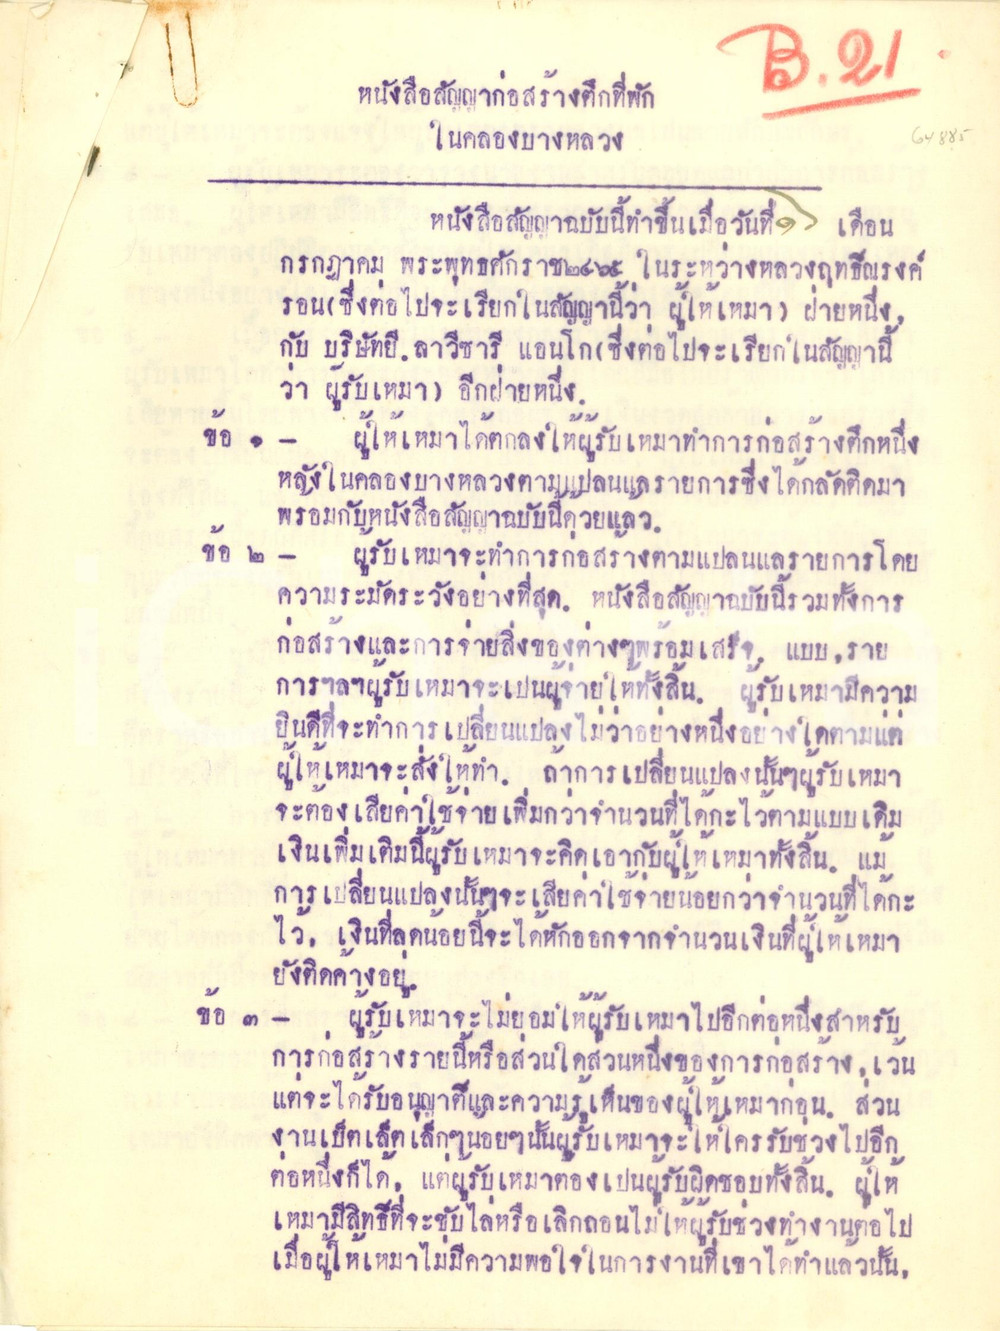 B.21
64885
หนังสือสัญญาก่อสร้างตึกที่พัก
ในคลองบางหลวง
หนังสือสัญญาฉบับนี้ทำขึ้นเมื่อวันที่ เดือน
กรกฎาคม พระพุทธศักราช๒๔๖๕ ในระหว่างหลวงฤทธิณรงค์
รอน(ซึ่งต่อไปจะเรียกในสัญญานี้ว่า ผู้ให้เหมา) ฝ่ายหนึ่ง,
กับ บริษัทยี.ลาวีซารี แอนโก(ซึ่งต่อไปจะเรียกในสัญญานี้
ว่า ผู้รับเหมา) อีกฝ่ายหนึ่ง.
ข้อ ๑ - ผู้ให้เหมาได้ตกลงให้ผู้รับเหมาทำการก่อสร้างตึกหนึ่ง
หลังในคลองบางหลวงตามแปลนแลรายการซึ่งได้กลัดติดมา
พร้อมกับหนังสือสัญญาฉบับนี้ด้วยแล้ว.
ข้อ ๒ - ผู้รับเหมาจะทำการก่อสร้างตามแปลนแลรายการโดย
ความระมัดระวังอย่างที่สุด. หนังสือสัญญาฉบับนี้รวมทั้งการ
ก่อสร้างและการจ่ายสิ่งของต่างๆพร้อมเสร็จ, แบบ,ราย
การฯลฯผู้รับเหมาจะเปนผู้จ่ายให้ทั้งสิ้น. ผู้รับเหมามีความ
ยินดีที่จะทำการเปลี่ยนแปลงไม่ว่าอย่างหนึ่งอย่างใดตามแต่
ผู้ให้เหมาจะสั่งให้ทำ. ถ้าการเปลี่ยนแปลงนั้นๆผู้รับเหมา
จะต้องเสียค่าใช้จ่ายเพิ่มกว่าจำนวนที่ได้กะไว้ตามแบบเดิม
เงินเพิ่มเติมนี้ผู้รับเหมาจะคิดเอากับผู้ให้เหมาทั้งสิ้น. แม้
การเปลี่ยนแปลงนั้นๆจะเสียค่าใช้จ่ายน้อยกว่าจำนวนที่ได้กะ
ไว้, เงินที่ลดน้อยนี้จะได้หักออกจากจำนวนเงินที่ผู้ให้เหมา
ยังติดค้างอยู่.
ข้อ ๓ - ผู้รับเหมาจะไม่ยอมให้ผู้รับเหมาไปอีกต่อหนึ่งสำหรับ
การก่อสร้างรายนี้หรือส่วนใดส่วนหนึ่งของการก่อสร้าง,เว้น
แต่จะได้รับอนุญาติและความรู้เห็นของผู้ให้เหมาก่อน. ส่วน
งานเบ็ตเล็ตเล็กๆน้อยๆนั้นผู้รับเหมาจะให้ใครรับช่วงไปอีก
ต่อหนึ่งก็ได้, แต่ผู้รับเหมาต้องเปนผู้รับผิดชอบทั้งสิ้น. ผู้ให้
เหมามีสิทธิที่จะขับไล่หรือเลิกถอนไม่ให้ผู้รับช่วงทำงานต่อไป
เมื่อผู้ให้เหมาไม่มีความพอใจในการงานที่เขาได้ทำแล้วนั้น,